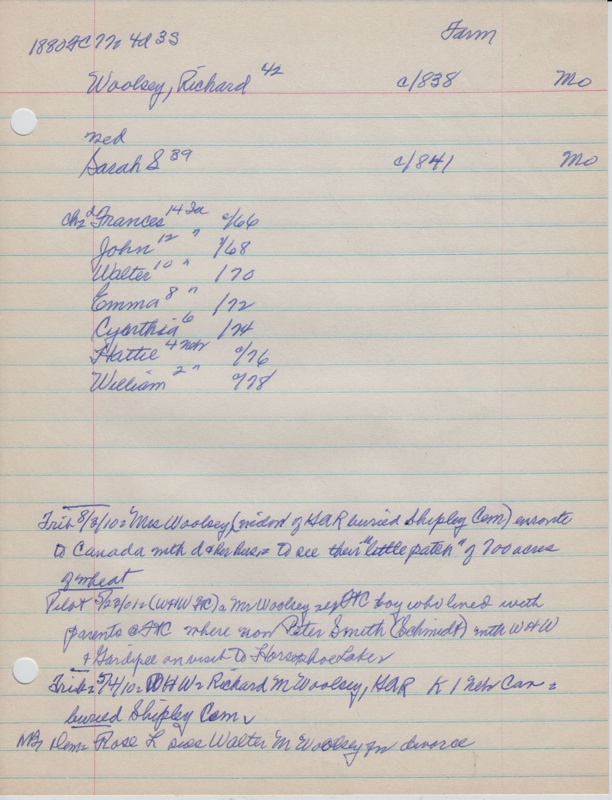 1880 FC 77o 4d 3S Farm
Woolsey, Richard 42 c/838 Mo
med
Sarah S 39 c/841 Mo
chd Frances 14 Ia c/66
John 12 " /68
Walter 10 " /70
Emma 8 " /72
Cynthia 6 /74
Hattie 4 Nebr c/76
William 2 " c/78
Trib 8/3/10 = Mrs Woolsey, (widow of GAR buried Shipley Cem) enroute
to Canada with d & her hus = to see their "little patch" of 700 acres
of wheat
Pilot (W H W FC) = Mr Woolsey FC boy who lived with
parents @ FC where now Peter Smith (Schmidt) with W H W
& Gardipee on visit to Horseshoe Lake
Trib = 5/4/10 = W H W = Richard M Woolsey, GAR K 1 Nebr Cav =
buried Shipley Cem
Dem = Rose L sues Walter M Woolsey for divorce